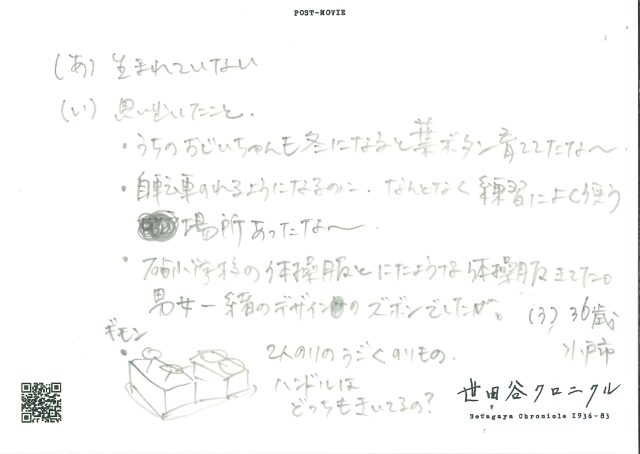 POST-MOVIE
(あ) 生まれていない
(い) 思い出したこと.
・うちのおじいちゃんも冬になると葉ボタン育ててたな〜
・自転車のれるようになるのに、なんとなく練習によく使う
場所あったな〜
・砧小学校の体操服とにたような体操服きてた。
男女一緒のデザインのズボンでしたが。
(う) 36歳
水戸市
ギモン
・2人のりのうごくのりもの.
ハンドルは
どっちもきいてるの?
世田谷クロニクル
Setagaya Chronicle 1936-83